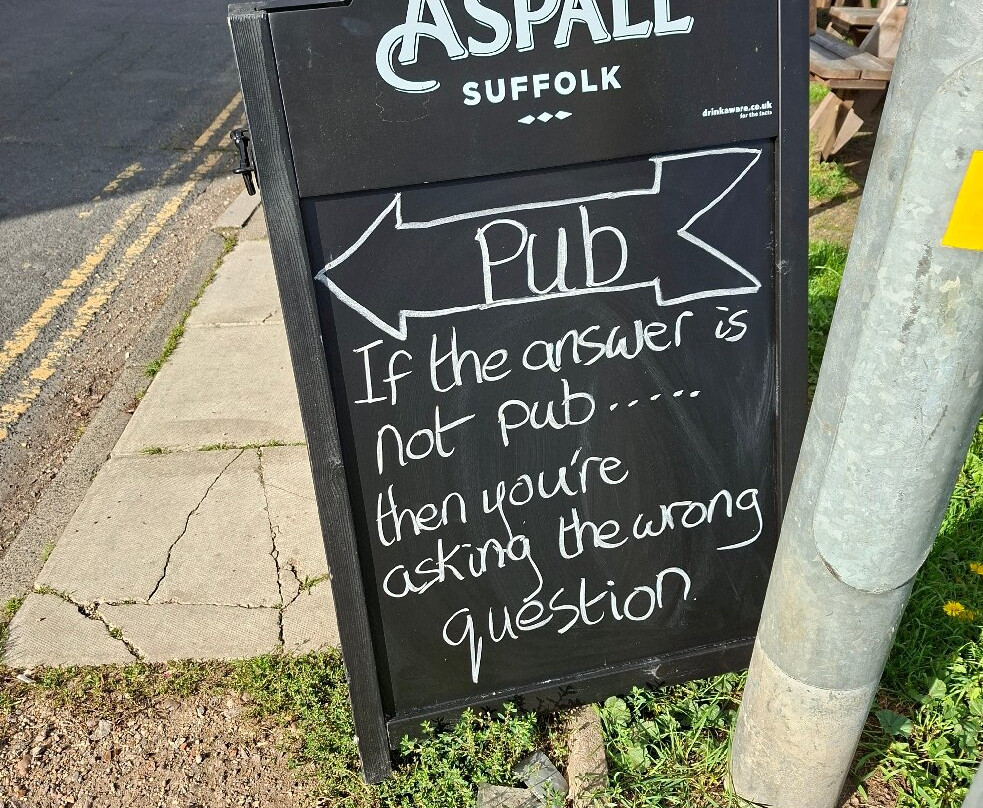 ASPALL
SUFFOLK
drinkaware.co.uk
for the facts
Pub
If the answer is
not pub.....
then you're
asking the wrong
question.